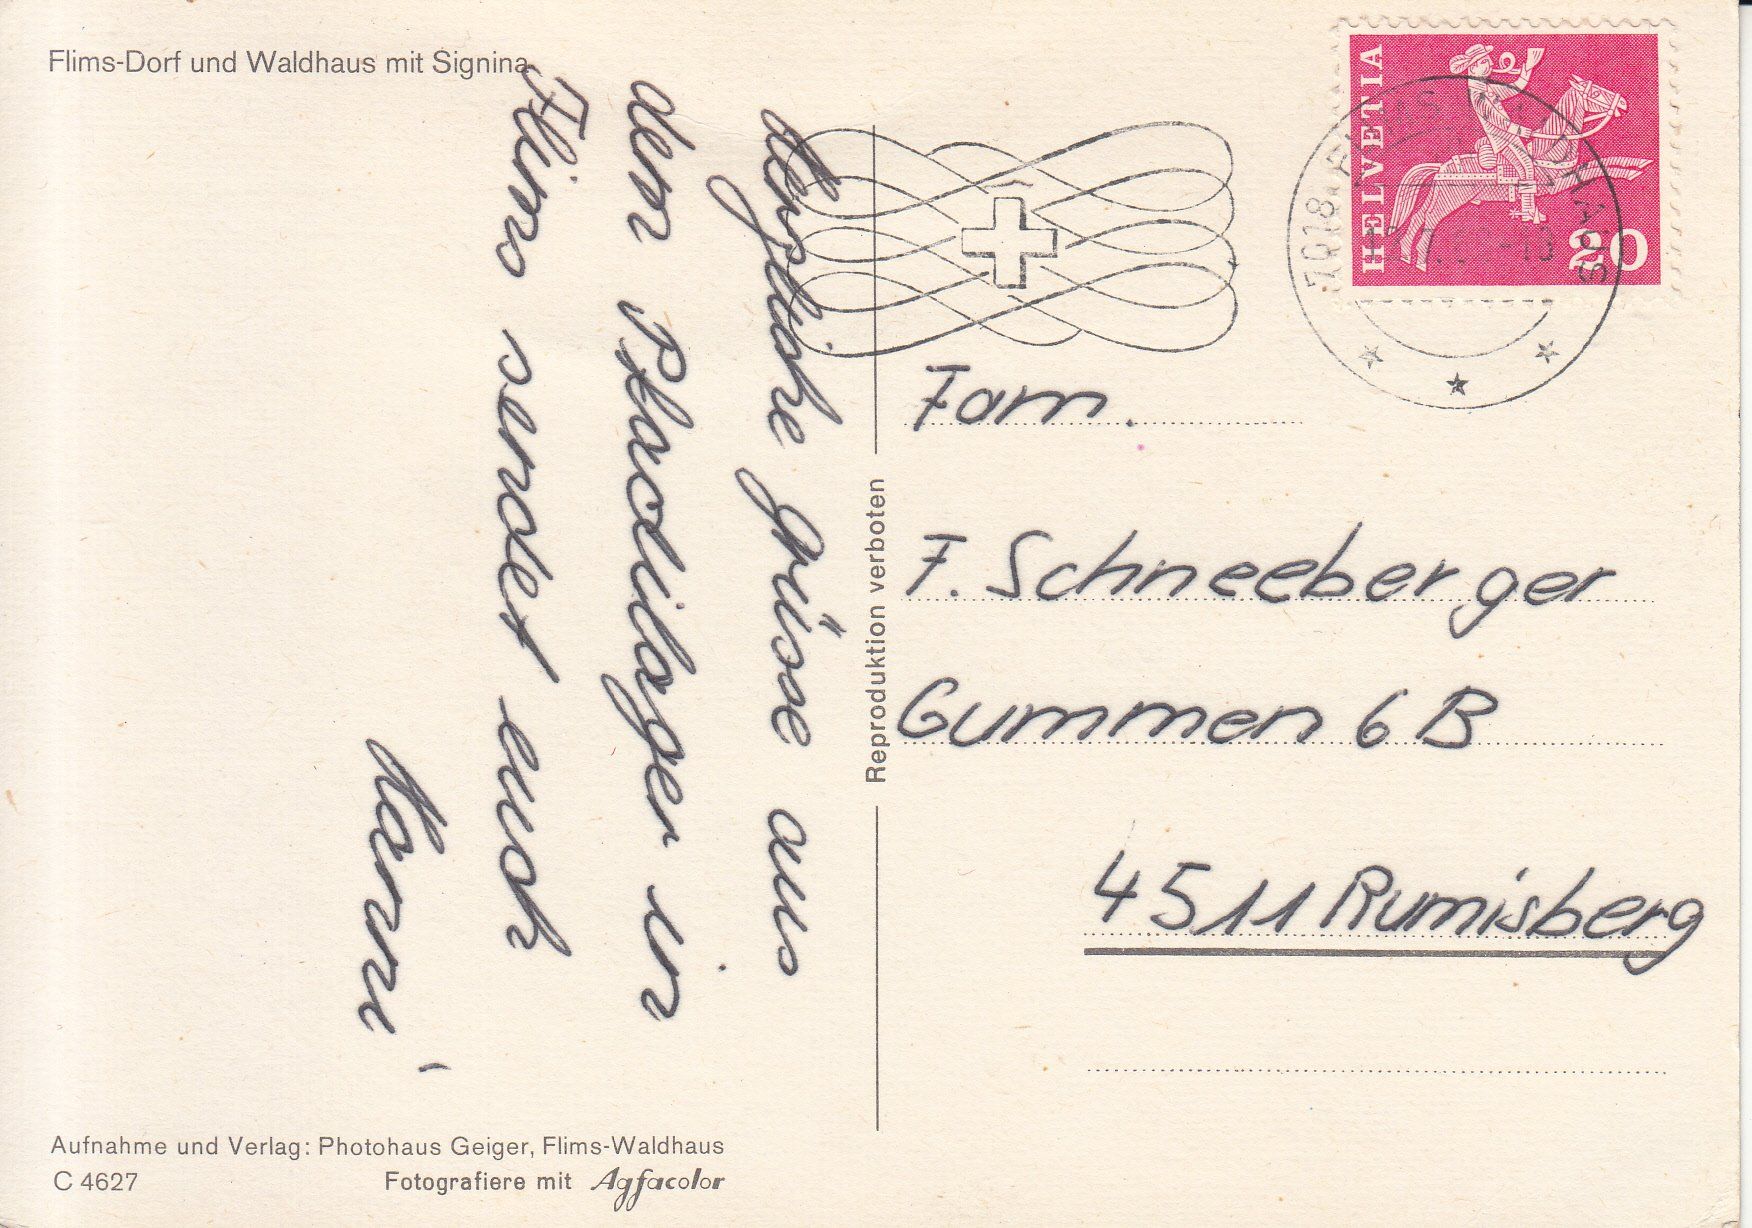 Flims-Dorf und Waldhaus mit Signina
Herzliche Grüsse aus
dem Pfadilager in
Flims sendet euch
Hansi
Aufnahme und Verlag: Photohaus Geiger, Flims-Waldhaus
C 4627
Fotografiere mit Agfacolor
Reproduktion verboten
HELVETIA
20
7018 FLIMS WALDHAUS
Fam.
F. Schneeberger
Gummen 6 B
4511 Rumisberg